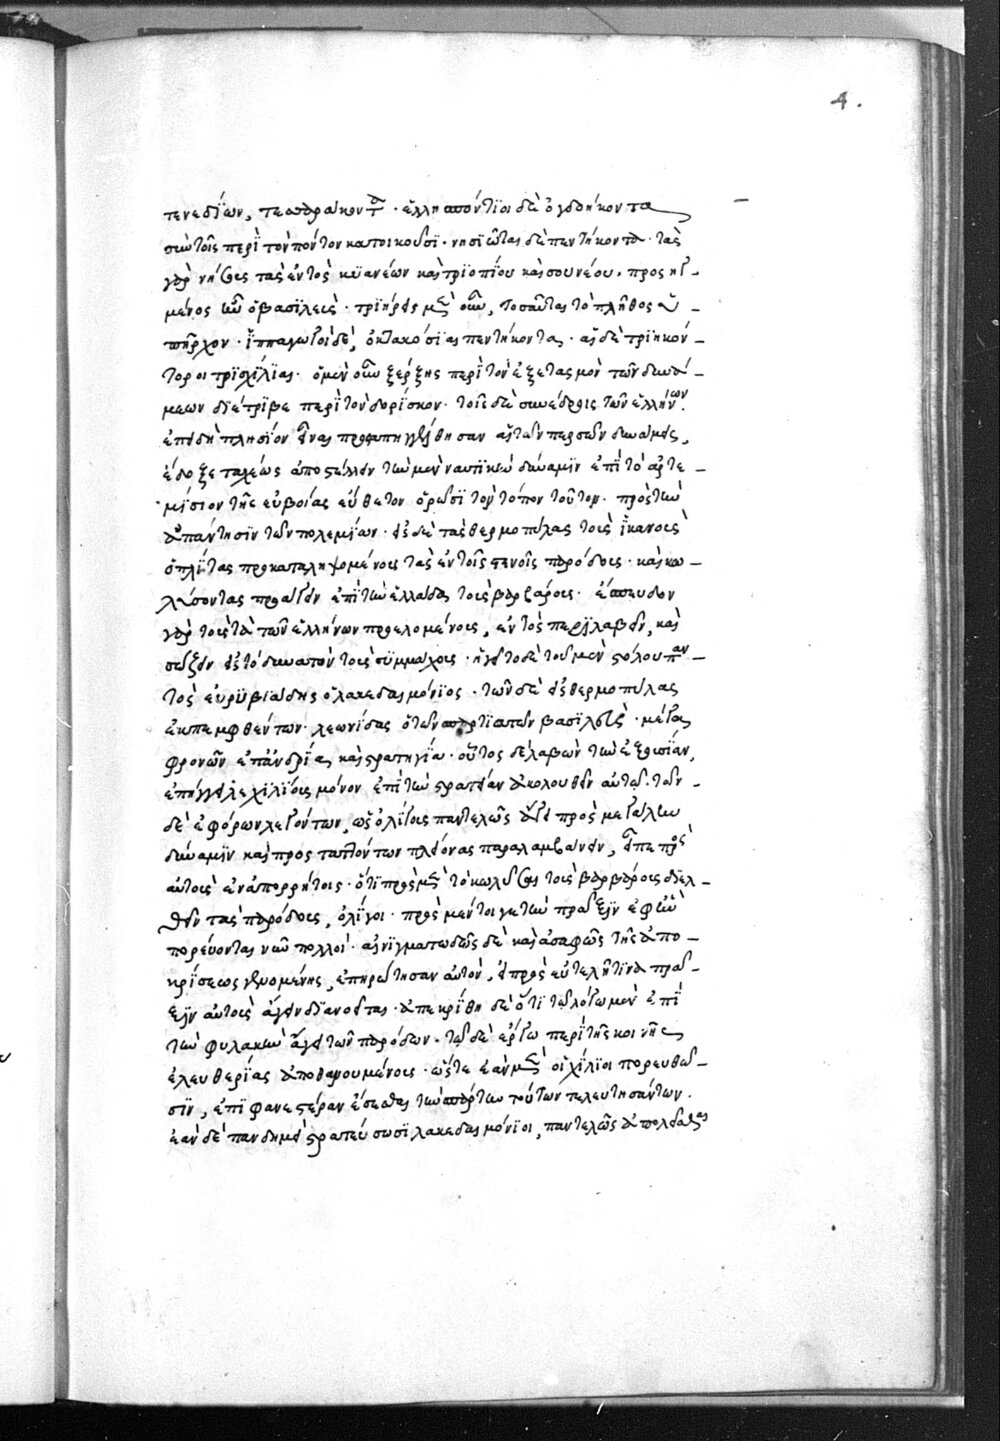 4.
τενεδίων, τεσσαράκοντα. ἑλλησπόντιοι δὲ ὀγδοήκοντα
σὺν τοῖς περὶ τὸν πόντον κατοικοῦσι. νησιῶται δὲ πεντήκοντα. τὰς
γὰρ νήσους τὰς ἐντὸς κυανέων καὶ τριοπίου καὶ σουνίου. προσηγ-
μένος ἦν ὁ βασιλεὺς. τριήρεις μὲν οὖν, τοσαῦται τὸ πλῆθος ὑ-
πῆρχον. ἱππαγωγοὶ δὲ, ὀκτακόσιαι πεντήκοντα. αἱ δὲ τριηκόν-
τοροι τρισχίλιαι. ὁ μὲν οὖν ξέρξης περὶ τὸν ἐξετασμὸν τῶν δυνά-
μεων διέτριβε περὶ τὸν δορίσκον. τοῖς δὲ συνέδροις τῶν ἑλλήνων.
ἐπειδὴ πλησίον εἶναι προσαπηγγέλθησαν αἱ τῶν περσῶν δυνάμεις,
ἔδοξε ταχέως ἀποστεῖλαι τὴν μὲν ναυτικὴν δύναμιν ἐπὶ τὸ ἀρτε-
μίσιον τῆς εὐβοίας εὔθετον ὁρῶσι τὸν τόπον τοῦτον. πρὸς τὴν
ἀπάντησιν τῶν πολεμίων. εἰς δὲ τὰς θερμοπύλας τοὺς ἱκανοὺς
ὁπλίτας προκαταληψομένους τὰς ἐν τοῖς στενοῖς παρόδους. καὶ κω-
λύσοντας προάγειν ἐπὶ τὴν ἑλλάδα τοὺς βαρβάρους. ἔσπευδον
γὰρ τοὺς τὰ τῶν ἑλλήνων προελομένους, ἐντὸς περιλαβεῖν, καὶ
σώζειν εἰς τὸ δυνατὸν τοὺς συμμάχους. ἡγεῖτο δὲ τοῦ μὲν στόλου παν-
τὸς εὐρυβιάδης ὁ λακεδαιμόνιος. τῶν δὲ εἰς θερμοπύλας
ἐκπεμφθέντων. λεωνίδας ὁ τῶν σπαρτιατῶν βασιλεὺς. μέγα
φρονῶν ἐπ' ἀνδρίᾳ καὶ στρατηγίᾳ. οὗτος δὲ λαβὼν τὴν ἐξουσίαν,
ἐπήγγειλε χιλίοις μόνον ἐπὶ τὴν στρατείαν ἀκολουθεῖν αὐτῷ. τῶν
δὲ ἐφόρων λεγόντων, ὡς ὀλίγους παντελῶς ἄγει πρὸς μεγάλην
δύναμιν καὶ προσταττόντων πλείονας παραλαμβάνειν, εἶπε πρὸς
αὐτοὺς ἐν ἀπορρήτοις. ὅτι πρὸς μὲν τὸ κωλῦσαι τοὺς βαρβάρους διελ-
θεῖν τὰς παρόδους, ὀλίγοι. πρὸς μέντοι γε τὴν πρᾶξιν ἐφ' ἣν
πορεύονται νῦν πολλοὶ. αἰνιγματωδῶς δὲ καὶ ἀσαφῶς τῆς ἀπο-
κρίσεως γενομένης, ἐπηρώτησαν αὐτὸν, εἰ πρὸς εὐτελῆ τινα πρᾶ-
ξιν αὐτοὺς ἄγειν διανοεῖται. ἀπεκρίθη δὲ ὅτι τῷ λόγῳ μὲν ἐπὶ
τὴν φυλακὴν ἄγει τῶν παρόδων. τῷ δὲ ἔργῳ περὶ τῆς κοινῆς
ἐλευθερίας ἀποθανουμένους. ὥστε ἐὰν μὲν οἱ χίλιοι πορευθῶ-
σιν, ἐπιφανεστέραν ἔσεσθαι τὴν σπάρτην τούτων τελευτησάντων.
ἐὰν δὲ πανδημεὶ στρατεύσωσι λακεδαιμόνιοι, παντελῶς ἀπολεῖσθαι